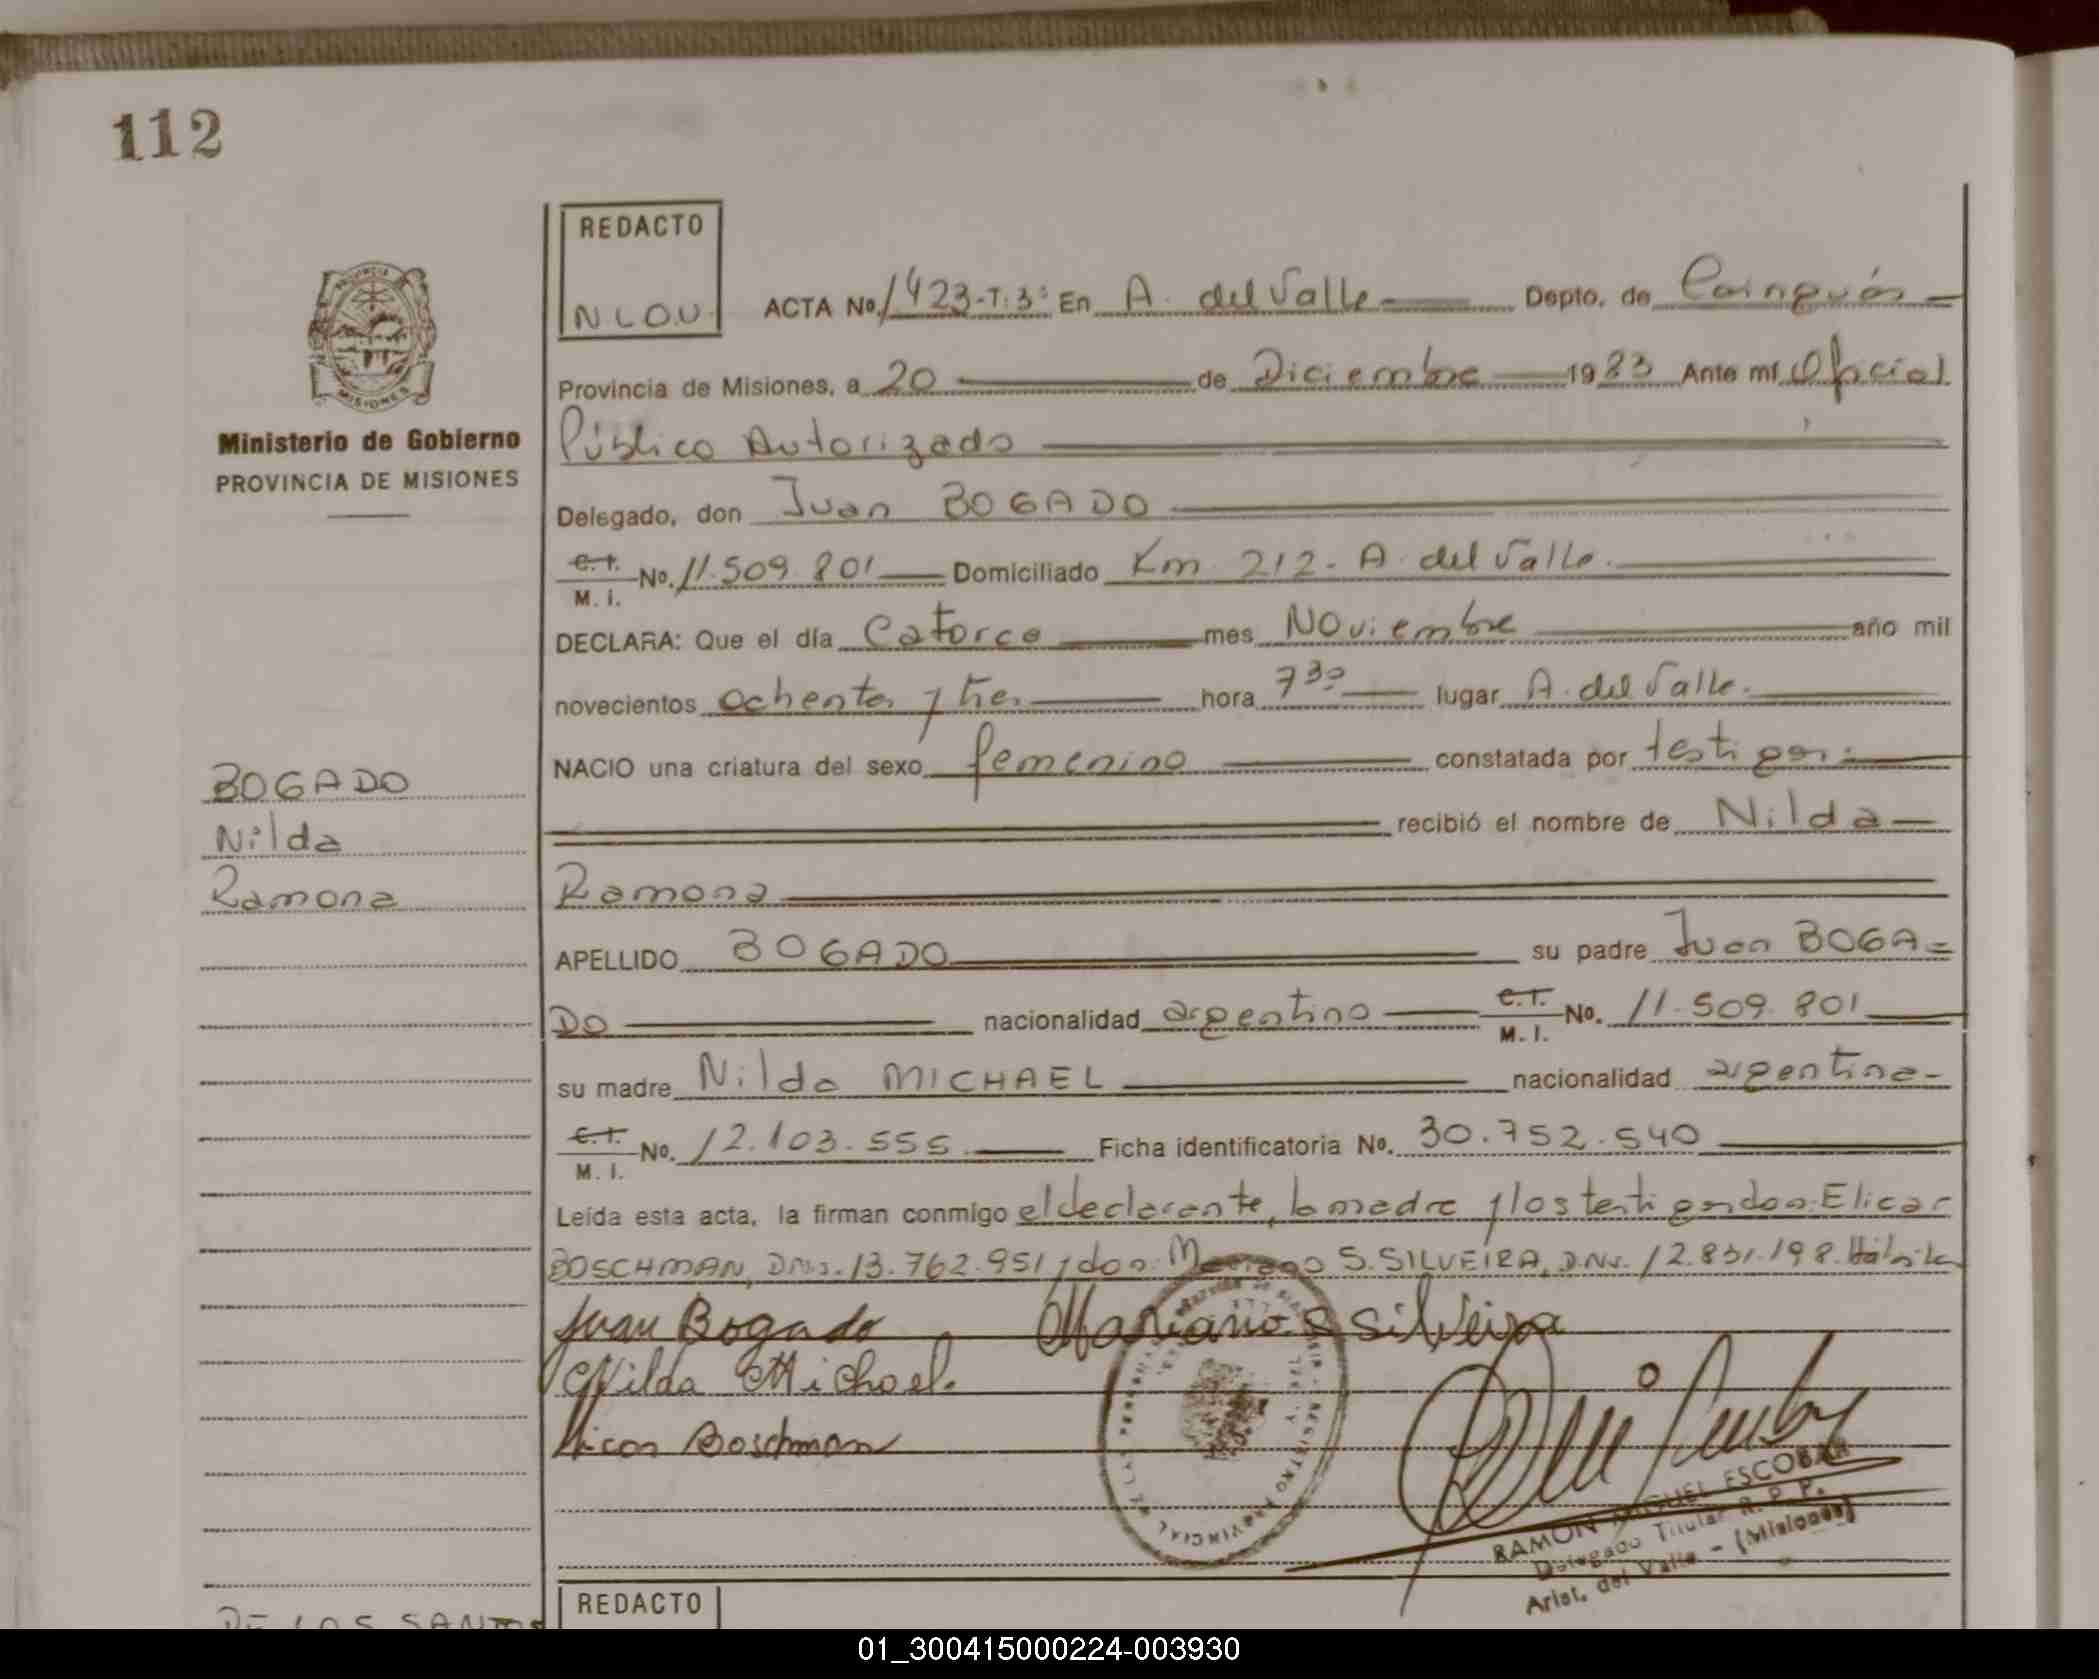 112
REDACTO
N.L.O.U.
ACTA No. 1423-T:3º En A. del Valle Depto. de Cainguás
Provincia de Misiones, a 20 de Diciembre 1983 Ante mí Oficial
Público Autorizado
Ministerio de Gobierno
PROVINCIA DE MISIONES
Delegado, don Juan BOGADO
C.I. M. I. No. 11.509.801 Domiciliado Km 212. A. del Valle.
DECLARA: Que el día Catorce mes Noviembre año mil
novecientos ochenta y tres hora 7 30 lugar A. del Valle.
NACIO una criatura del sexo femenino constatada por testigos:
recibió el nombre de Nilda
Ramona
BOGADO
Nilda
Ramona
APELLIDO BOGADO su padre Juan BOGA=
DO nacionalidad argentino C.I. M. I. No. 11.509.801
su madre Nilda MICHAEL nacionalidad argentina
C.I. M. I. No. 12.103.555 Ficha identificatoria No. 30.752.540
Leída esta acta, la firman conmigo el declarante, la madre y los testigos don: Elicar
BOSCHMAN, DNI. 13.762.951 y don: Mariano S. SILVEIRA, DNI. 12.831.198.
Juan Bogado Mariano S Silveira
Nilda Michael.
Elicar Boschman
PROVINCIA
MISIONES
RAMON MIGUEL ESCOBAR
Delegado Titular R. P. P.
Arist. del Valle - (Misiones)
REDACTO
DE LOS SANTOS
01_300415000224-003930